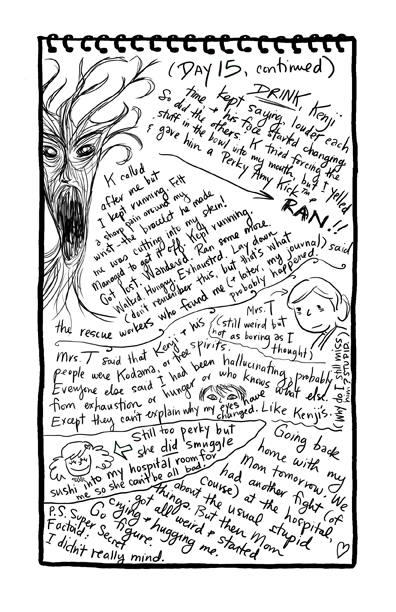 (DAY 15, continued)
DRINK, Kenji
time kept saying, louder each
So did + his face started changing
the others. K tried forcing the
stuff in the bowl into my mouth, but I yelled
& gave him a Perky Amy Kick™ +
RAN!!
K called
after me but
I kept running. Felt
a sharp pain around my
wrist – the bracelet he made
me was cutting into my skin!
Managed to get it off. Kept running.
Got lost. Wandered. Ran some more.
Walked. Hungry. Exhausted. Lay down
(don't remember this, but that's what
the rescue workers who found me (+ later, my journal) said
probably happened.
Mrs. T
(still weird but
not as boring as I
thought)
Mrs. T said that Kenji + his
people were Kodama, or tree spirits.
Everyone else said I had been hallucinating, probably
from exhaustion or hunger or who knows what else.
Except they can't explain why my eyes have
changed. Like Kenji's.
Why do I still miss
him? STUPID.
Still too perky but
she did smuggle
sushi into my hospital room for
me so she can't be all bad.
Going back
home with my
Mom tomorrow. We
had another fight (of
course) at the hospital,
about the usual stupid
things. But then Mom
got all weird + started
crying + hugging me.
Go figure.
P.S. Super Secret
Factoid:
I didn't really mind.